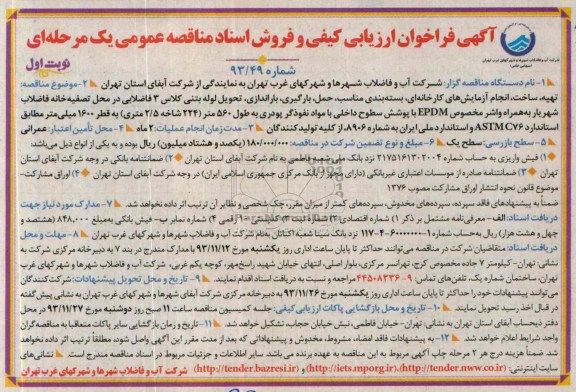 آگهی فراخوان ارزیابی کیفی و فروش اسناد مناقصه عمومی یک مرحله‌ای
شماره ۹۳/۴۹
نوبت اول
شرکت آب و فاضلاب شهرها و شهرکهای غرب تهران
(سهامی خاص)
۱- نام دستگاه مناقصه گزار: شرکت آب و فاضلاب شهرها و شهرکهای غرب تهران به نمایندگی از شرکت آبفای استان تهران ۲- موضوع مناقصه:
تهیه، ساخت، انجام آزمایش‌های کارخانه‌ای، بسته‌بندی مناسب، حمل، بارگیری، باراندازی، تحویل لوله بتنی کلاس ۳ فاضلابی در محل تصفیه‌خانه فاضلاب
شهریار به همراه واشر مخصوص EPDM با پوشش سطوح داخلی با مواد نفوذگر پودری به طول ۵۶۰ متر (۲۲۴ شاخه ۲/۵ متری) به قطر ۱۶۰۰ میلی‌متر مطابق
استاندارد ASTM C۷۶ و استاندارد ملی ایران به شماره ۸۹۰۶، از کلیه تولیدکنندگان ۳- مدت زمان انجام عملیات: ۲ ماه ۴- محل تأمین اعتبار: عمرانی
۵- سطح بازرسی: سطح یک ۶- مبلغ و نوع تضمین شرکت در مناقصه: ۱۸۰/۰۰۰/۰۰۰ (یکصد و هشتاد میلیون) ریال بوده و از انواع ذیل می‌باشد:
۱) فیش واریزی به حساب شماره ۲۱۷۵۱۶۱۳۰۲۰۰۴ نزد بانک ملی شعبه فاطمی به نام شرکت آبفای استان تهران ۲) ضمانتنامه بانکی در وجه شرکت آبفای استان
تهران ۳) ضمانتنامه صادره از موسسات اعتباری غیربانکی (دارای مجوز از بانک مرکزی جمهوری اسلامی ایران) در وجه شرکت آبفای استان تهران ۴) اوراق مشارکت-
موضوع قانون نحوه انتشار اوراق مشارکت مصوب ۱۳۷۶
ضمناً به پیشنهادهای فاقد سپرده، سپرده‌های مخدوش، سپرده‌های کمتر از میزان مقرر، چک شخصی و نظایر آن ترتیب اثر داده نخواهد شد. ۷- مدارک مورد نیاز جهت
دریافت اسناد: الف- معرفی‌نامه مشتمل بر ذکر ۱) شماره اقتصادی ۲) شناسه ملی ۳) کدپستی ۱۰ رقمی ۴) شماره نمابر ب- فیش بانکی به‌مبلغ ۸۴۸,۰۰۰ (هشتصد و
چهل و هشت هزار) ریال به‌حساب شماره ۱-۶۰۰۰۰۰۰-۴-۱۱۷ نزد بانک سینا شعبه اکباتان به‌نام شرکت آب و فاضلاب شهرها و شهرکهای غرب تهران ۸- مهلت و محل
دریافت اسناد: متقاضیان شرکت در مناقصه می‌توانند حداکثر تا پایان ساعت اداری روز یکشنبه مورخ ۹۳/۱۱/۱۲ با مدارک مندرج در بند ۷ به دبیرخانه مرکزی شرکت به
نشانی: تهران- کیلومتر ۷ جاده مخصوص کرج، تهرانسر مرکزی، بلوار اصلی، انتهای خیابان شهید راسخ‌مهر، کوچه یکم غربی، شرکت آب و فاضلاب شهرها و شهرکهای غرب
تهران، ساختمان شماره یک، تلفن‌های تماس: ۹-۴۴۵۰۸۳۳۶ مراجعه و نسبت به دریافت اسناد اقدام نمایند. ۹- تاریخ و محل تحویل پیشنهادات: شرکت‌کنندگان
می‌توانند پیشنهادات خود را حداکثر تا پایان ساعت اداری روز یکشنبه مورخ ۹۳/۱۱/۲۶ به دبیرخانه مرکزی شرکت آبفای شهرها و شهرکهای غرب تهران به نشانی پیش‌گفته
در قبال اخذ رسید تحویل نمایند. ۱۰- تاریخ و محل بازگشایی پاکات ارزیابی کیفی: جلسه کمیسیون مناقصه ساعت ۱۱ صبح روز دوشنبه مورخ ۹۳/۱۱/۲۷ در محل
دفتر ذیحساب آبفای استان تهران به نشانی: تهران- خیابان فاطمی، نبش خیابان حجاب، تشکیل خواهد شد. ۱۱- تاریخ و زمان بازگشایی سایر پاکات متعاقباً به مناقصه‌گران
واجد شرایط اعلام خواهد شد. ۱۲- به پیشنهادات فاقد امضاء، مشروط، مخدوش و پیشنهاداتی که بعد از مدت مقرر این آگهی واصل شود، مطلقاً ترتیب اثر داده نخواهد
شد. ضمناً هزینه درج هر ۲ مرحله چاپ آگهی مربوط به این مناقصه به عهده برنده می‌باشد. سایر اطلاعات و جزئیات مربوط در اسناد مناقصه مندرج است. نشانی‌های
سایت اینترنتی: (http://tender.nww.co.ir)، (http://iets.mporg.ir) و (http://tender.bazresi.ir) شرکت آب و فاضلاب شهرها و شهرکهای غرب تهران